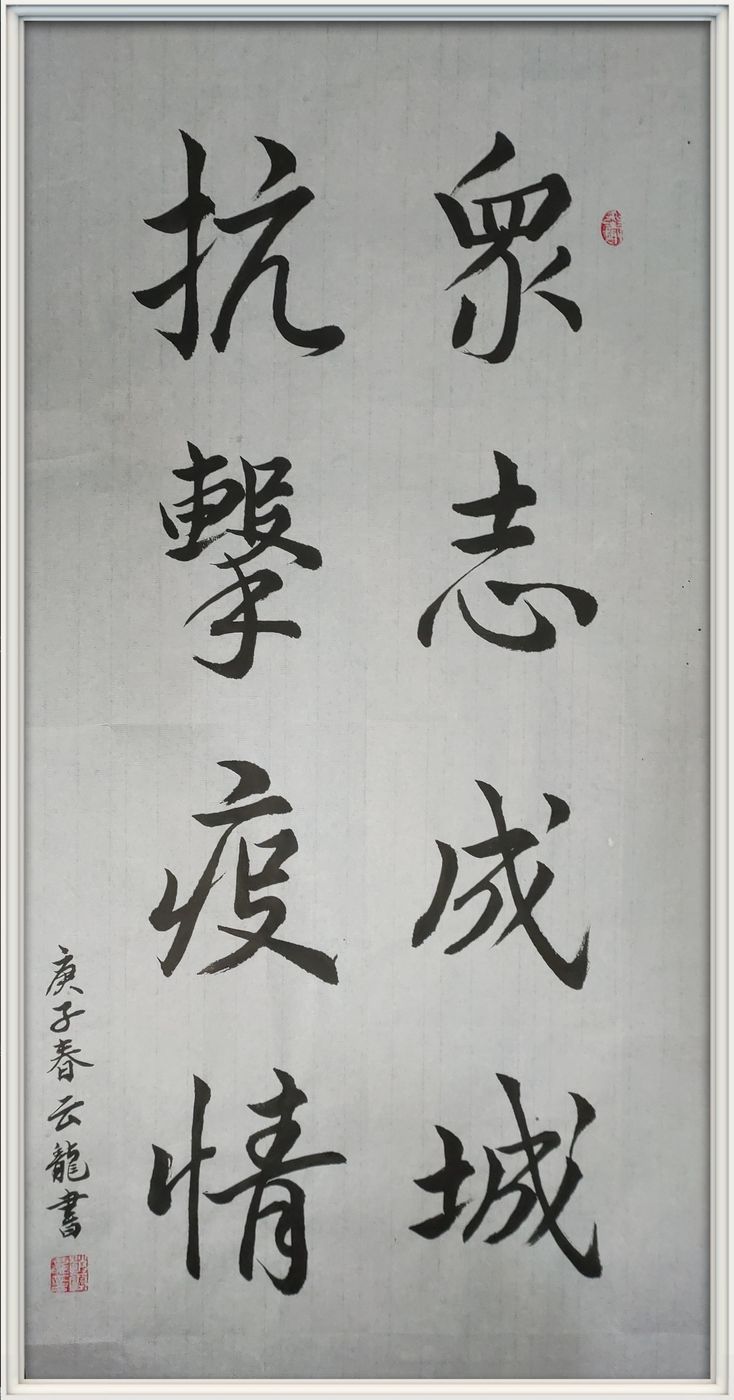 眾志成城
抗擊疫情
庚子春云龍書